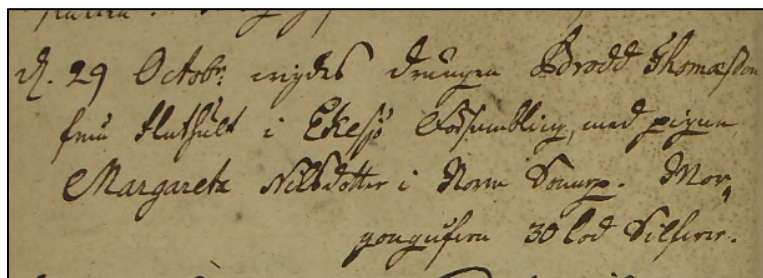 d. 29 Octobr: wigdes drengen Brodd Thomæson
frun Hathult i Ekesjö Försambling, med pigan
Margareta Nilsdotter i Norra Sonarp. Mor„
gongåfwan 30 lod Silfwer.